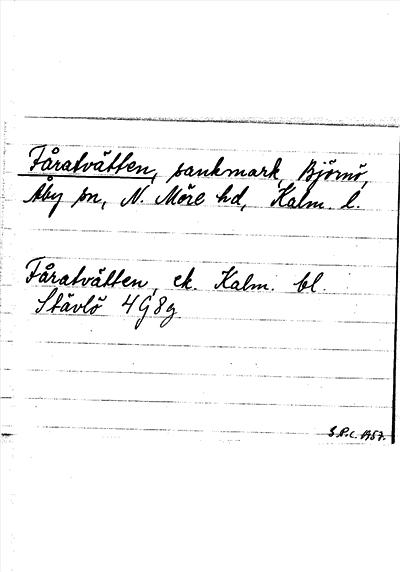 Fåratvätten, sankmark, Björnö,
Åby sn, N. Möre hd, Kalm. l.
Fåratvätten, ek. Kalm. bl.
Stävlö 4G8g
1957.